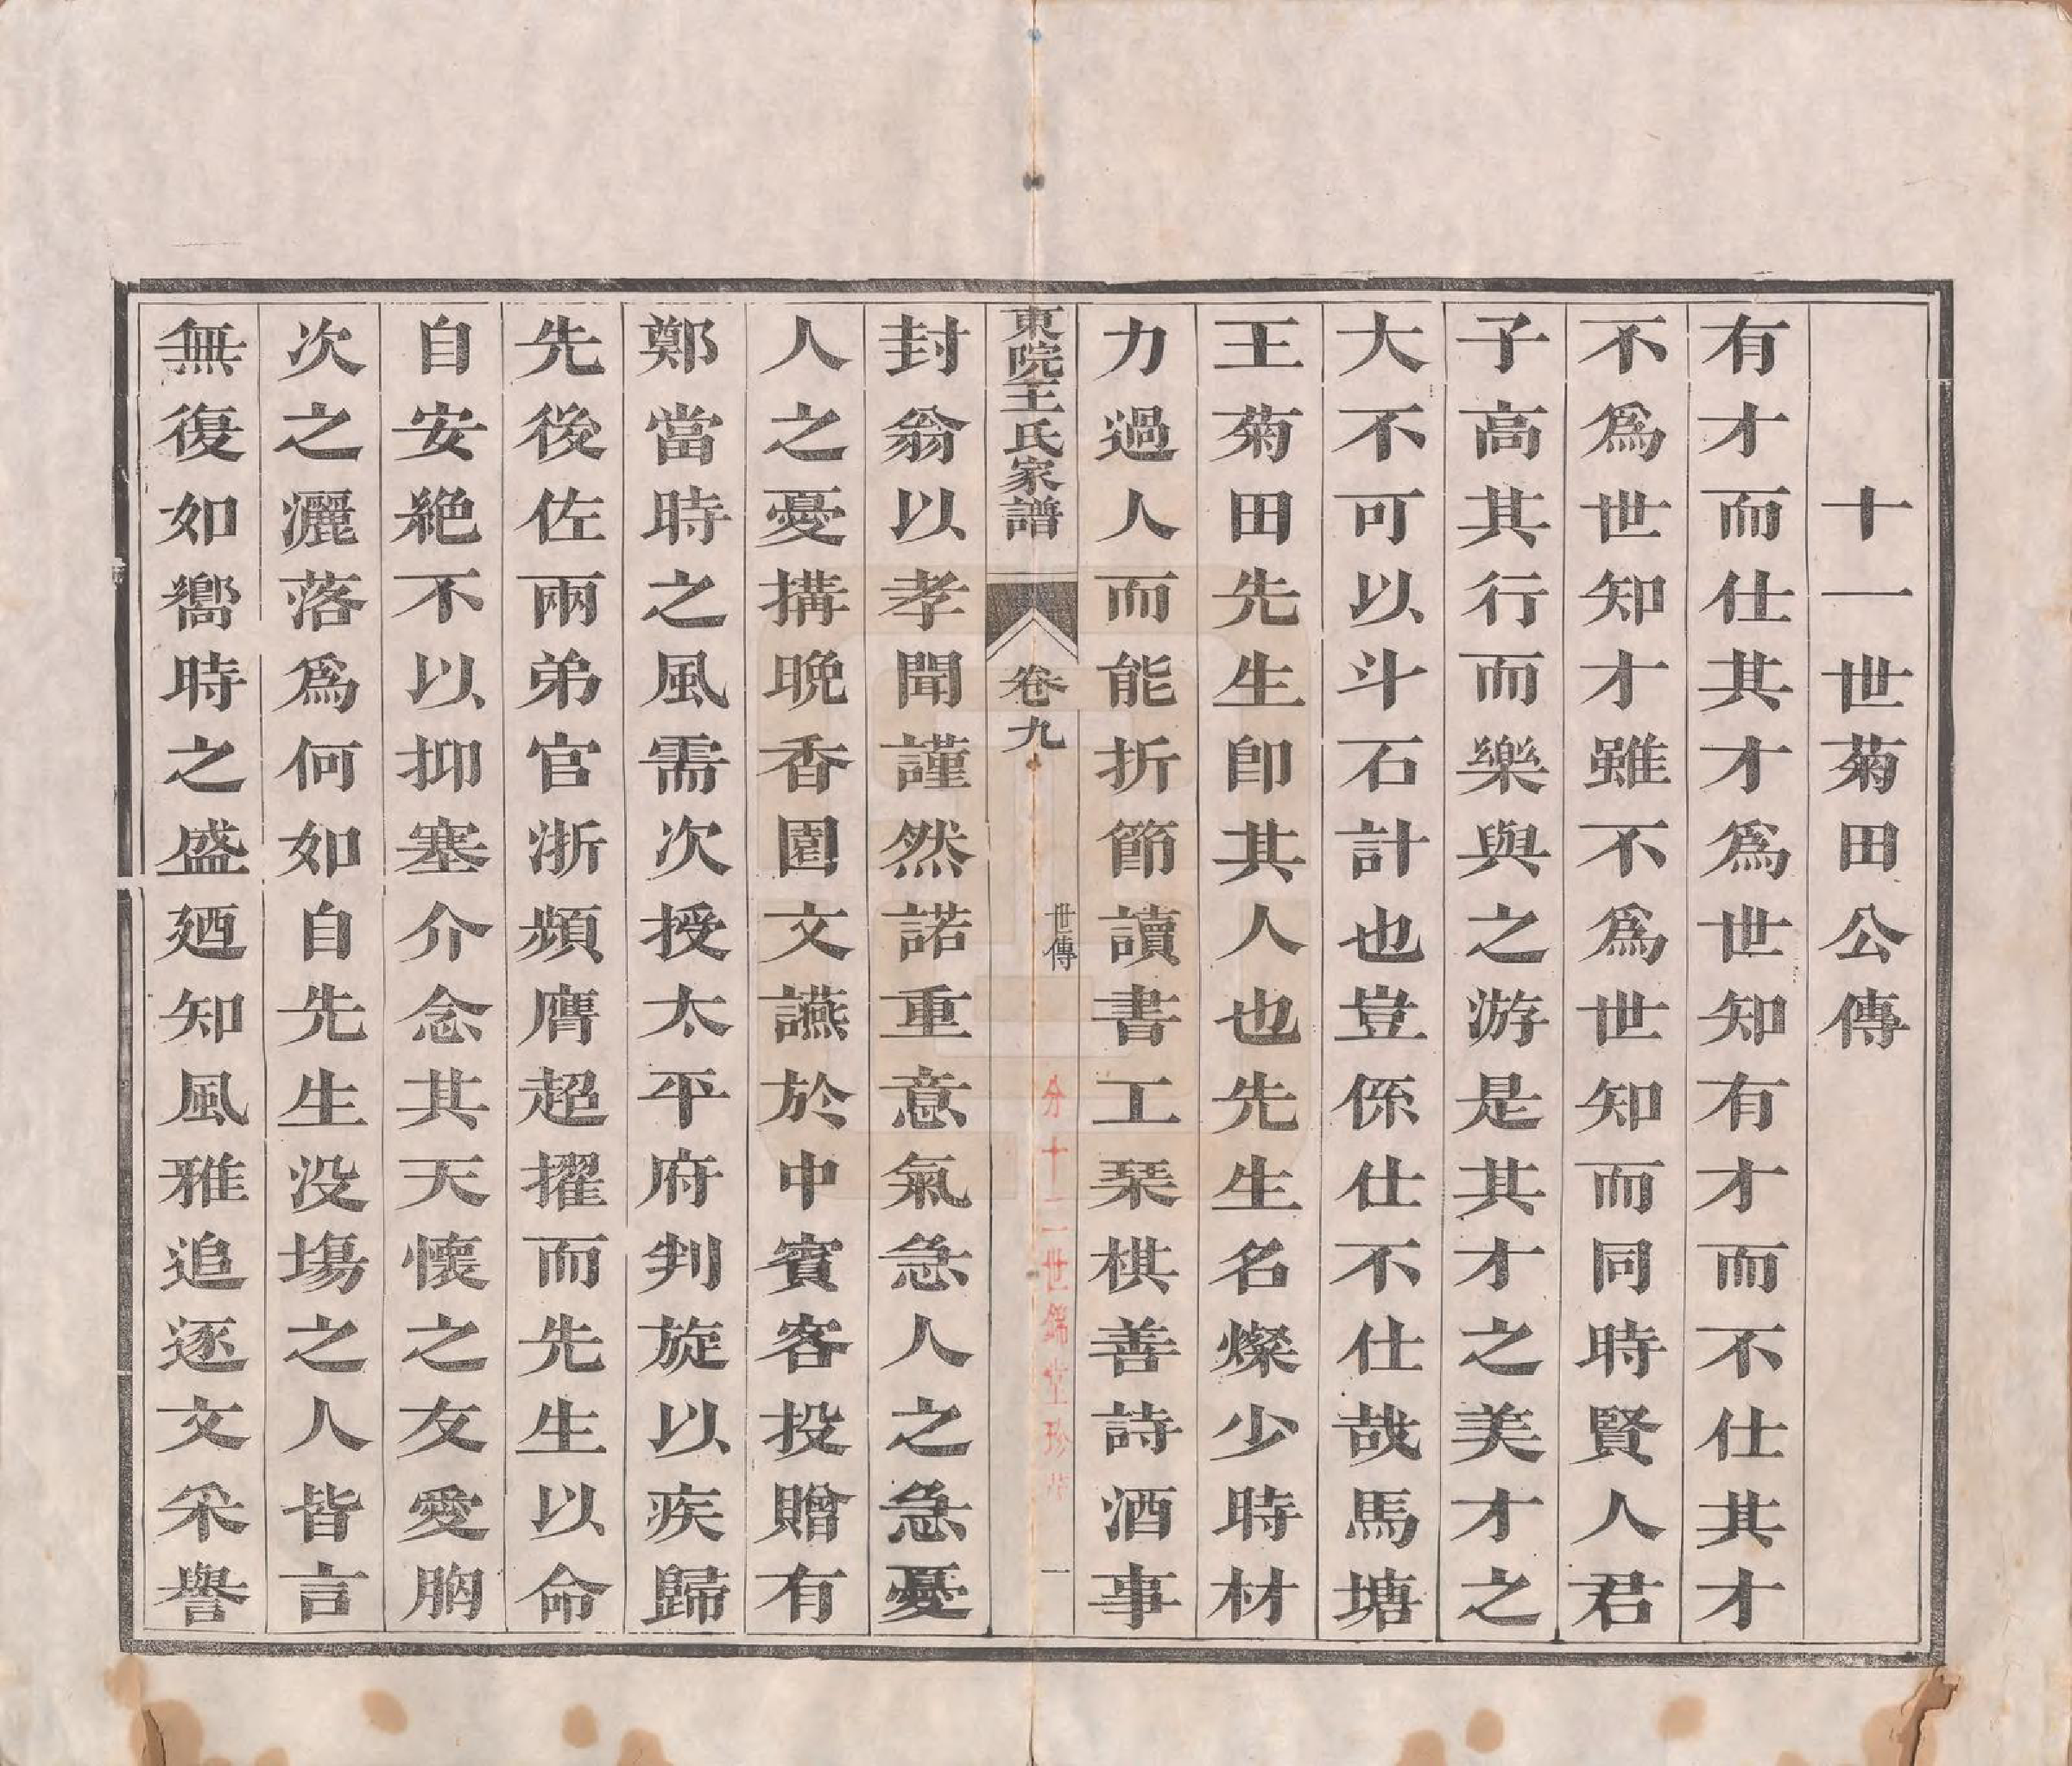 十一世菊田公傳
有才而仕其才爲世知有才而不仕其才
不爲世知才雖不爲世知而同時賢人君
子高其行而樂與之游是其才之美才之
大不可以斗石計也豈係仕不仕哉馬塘
王菊田先生卽其人也先生名燦少時材
力過人而能折節讀書工琹棋善詩酒事
東院王氏家譜 卷九 世傳 一
分十二世錦堂珍
封翁以孝聞謹然諾重意氣急人之急憂
人之憂搆晚香園文讌於中賓客投贈有
鄭當時之風需次授太平府判旋以疾歸
先後佐兩弟官浙頻膺超擢而先生以命
自安絶不以抑塞介念其天懷之友愛胸
次之灑落爲何如自先生没塲之人皆言
無復如嚮時之盛廼知風雅追逐文采譽